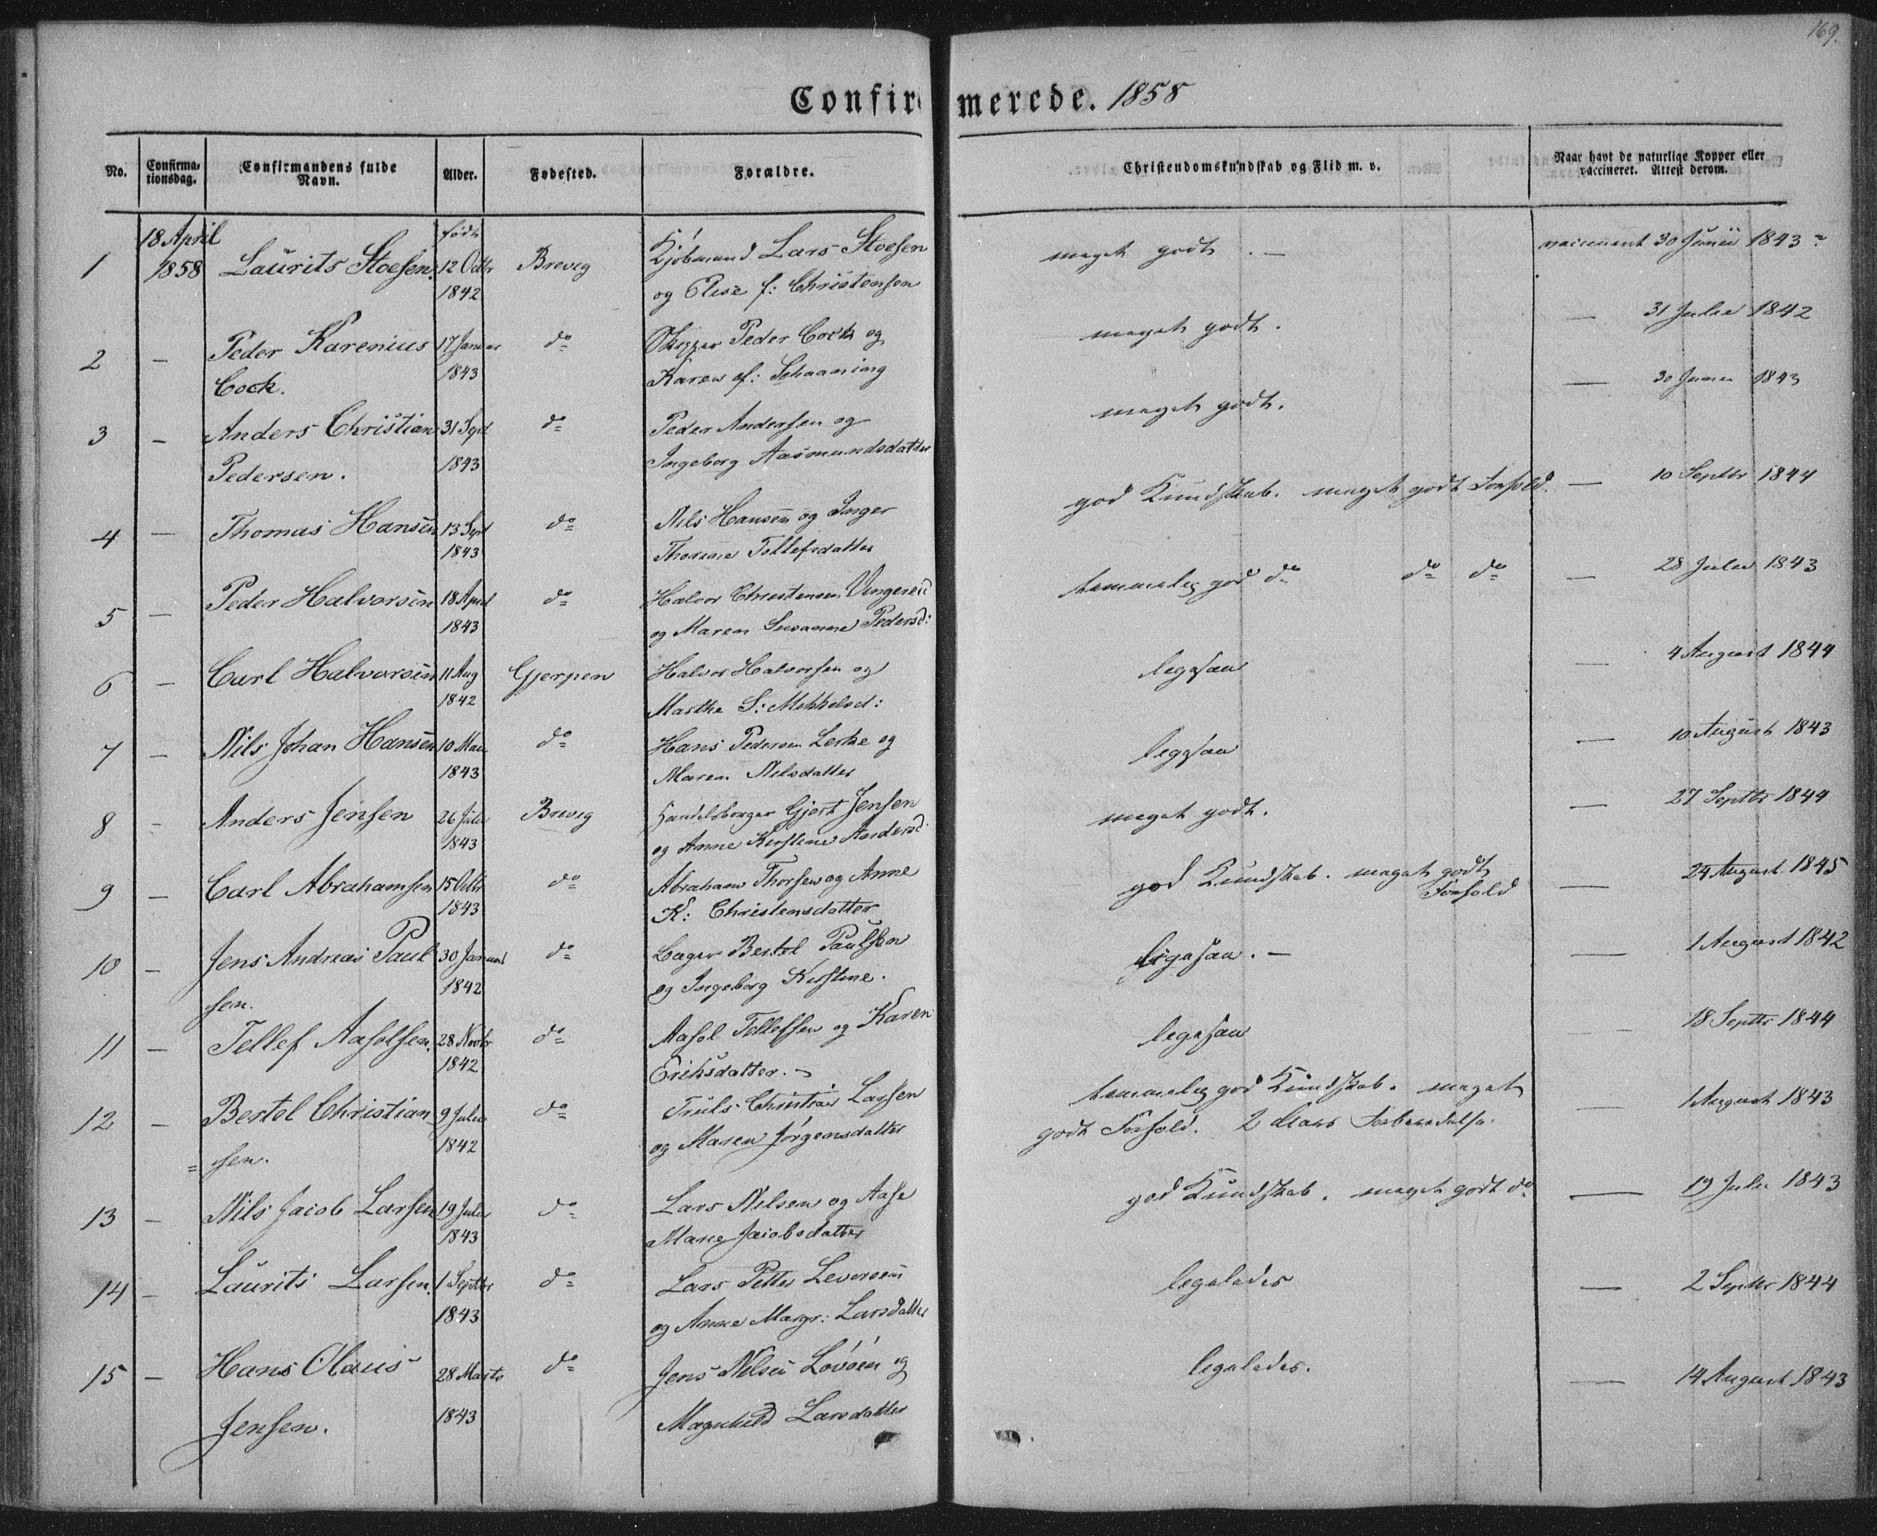 169.
Confirmerede. 1858
No. Confirma-tionsdag. Confirmandens fulde Navn. Alder. Fødested. Forældre. Christendomskundskab og Flid m. v. Naar havt de naturlige Kopper eller vaccineret. Attest derom.
18 April født Kjøbmand Lars Stoesen
1 1858 Laurits Stoesen 12 Octbr Brevig meget godt. — vaccineret 30 Junii 1843
1842 og Elise f: Christensen
2 — Peder Karenius 17 Januar do Skipper Peder Cock og meget godt. — 31 Julii 1842
Cock. 1843 Karen f: Schaaning
3 — Anders Christian 31 Sept do Peder Andersen og meget godt. — 30 Junii 1843
Pedersen. 1843 Ingeborg Aasmundsdatter
4 — Thomas Hansen 13 Sept do Nils Hansen og Inger god Kundskab. meget godt Forhold. — 10 Septbr 1844
1843 Thorine Tollefsdatter
5 — Peder Halvorsen 18 April do Halvor Christensen Vingereid temmelig god do do do — 28 Julii 1843
1843 og Maren Susanne Pedersd:
6 — Carl Halvorsen 11 Aug Gjerpen Halvor Halvorsen og ligesaa — 4 August 1844
1842 Marthe S: Mikkelsd:
7 — Nils Johan Hansen 10 Mai do Hans Pedersen Lerke og ligesaa — 10 August 1843
1843 Maren Nilsdatter
8 — Anders Jensen 26 Julii Brevig Handelsborger Gjert Jensen meget godt. — 27 Septbr 1844
1843 og Anne Kirstine Andersd:
9 — Carl Abrahamsen 15 Octbr do Abraham Thorsen og Anne god Kundskab. meget godt Forhold — 24 August 1845
1843 K: Christensdatter
10 — Jens Andreas Paul 30 Januar do Bager Bertel Paulsen ligesaa. — — 1 August 1842
sen. 1842 og Ingeborg Kirstine.
11 — Tellef Aasolsen. 28 Novbr do Aasol Tellefsen og Karen ligesaa — 18 Septbr 1844
1842 Eriksdatter. —
12 — Bertel Christian 9 Julii do Truls Christian Larsen temmelig god Kundskab. meget — 1 August 1843
= sen. 1842 og Maren Jørgensdatter godt Forhold. 2 Aars Forberedelse.
13 — Nils Jacob Larsen 19 Julii do Lars Nilsen og Aase god Kundskab. meget godt do — 19 Julii 1843
1843 Marie Jacobsdatter
14 — Laurits Larsen. 1 Septbr do Lars Petter Leversen ligeledes — 2 Septbr 1844
1843 og Anne Margr: Larsdatter
15 — Hans Olaus 28 Marts do Jens Nilsen Løvøen og ligeledes. — 14 August 1843
Jensen. 1843 Magnhild Larsdatter